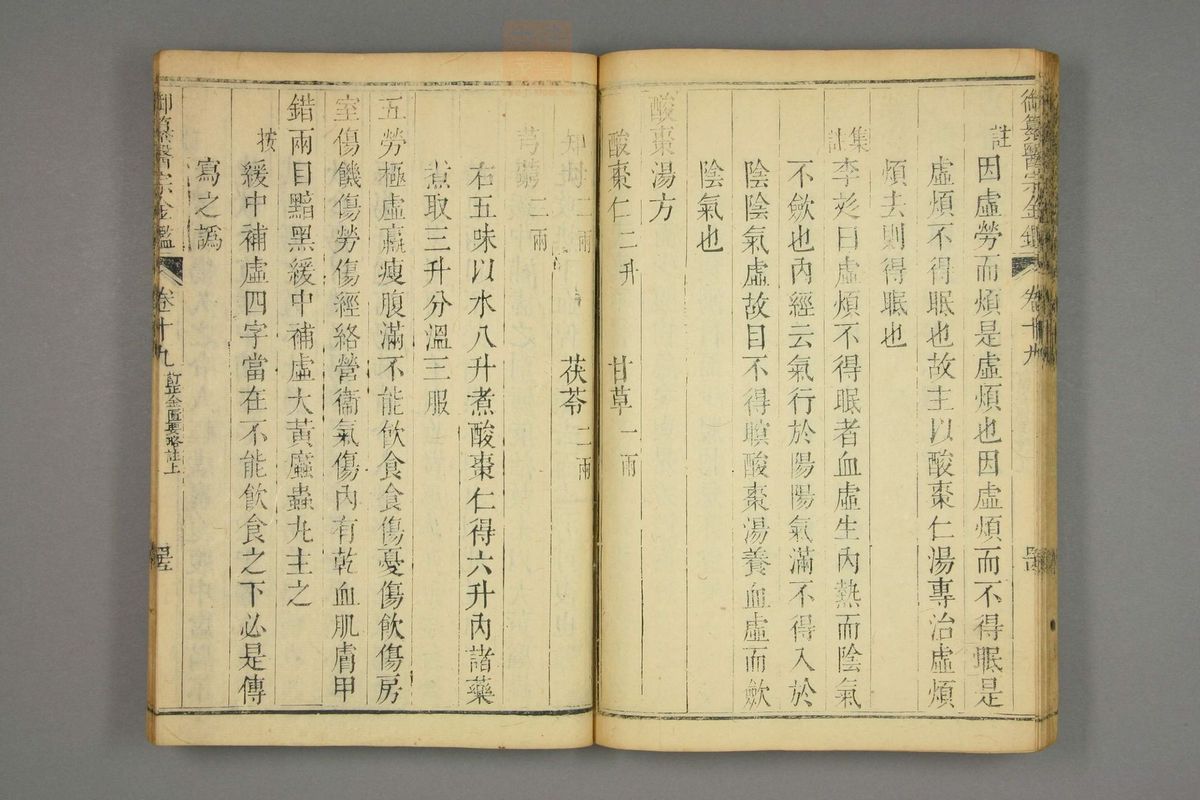 御纂醫宗金鑑 卷十九
註 因虛勞而煩是虛煩也因虛煩而不得眠是
虛煩不得眠也故主以酸棗仁湯專治虛煩
煩去則得眠也
集註 李彣曰虛煩不得眠者血虛生內熱而陰氣
不斂也內經云氣行於陽陽氣滿不得入於
陰陰氣虛故目不得瞑酸棗湯養血虛而斂
陰氣也
酸棗湯方
酸棗仁二升 甘草一兩
知母二兩 茯苓二兩
芎藭二兩
右五味以水八升煮酸棗仁得六升內諸藥
煮取三升分溫三服
五勞極虛羸瘦腹滿不能飲食食傷憂傷飲傷房
室傷饑傷勞傷經絡營衞氣傷內有乾血肌膚甲
錯兩目黯黑緩中補虛大黃䗪蟲丸主之
按 緩中補虛四字當在不能飲食之下必是傳
寫之譌
御纂醫宗金鑑 卷十九 訂正金匱要略註上